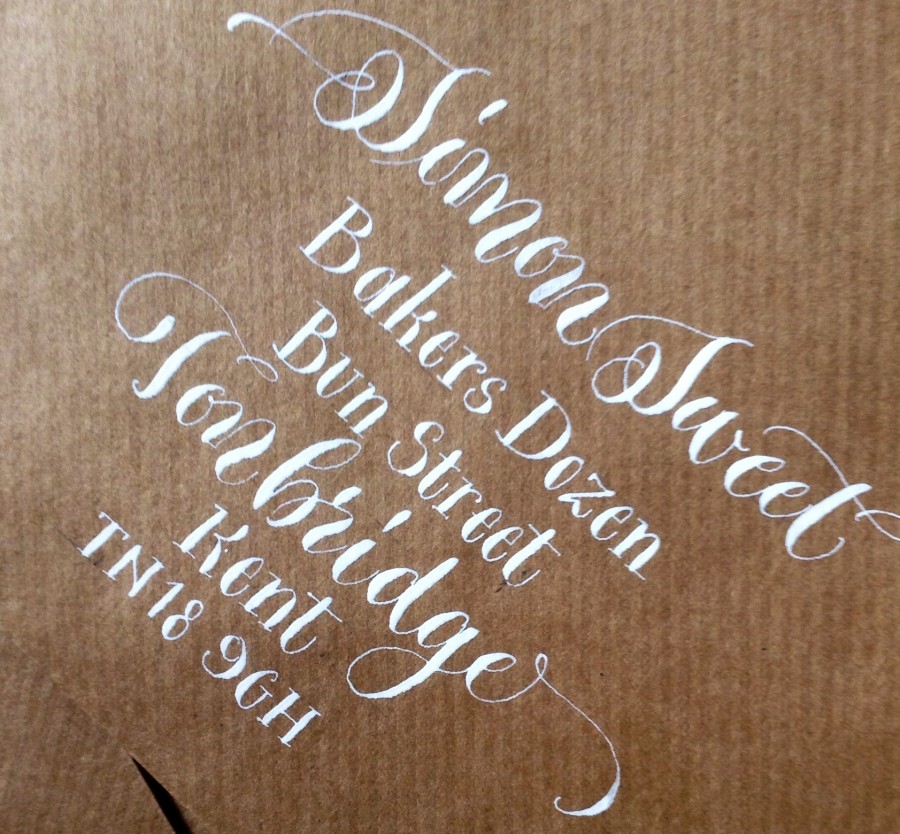 Simon Sweet
Bakers Dozen
Bun Street
Tonbridge
Kent
TN18 9GH